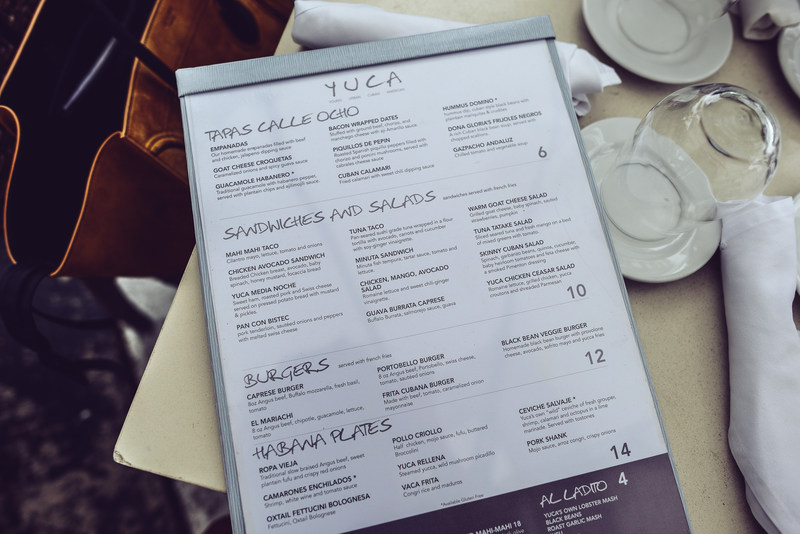 YUCA
TAPAS CALLE OCHO
EMPANADAS
Our homemade empanadas filled with beef
and chicken, jalapeno dipping sauce
GOAT CHEESE CROQUETAS
Caramelized onions and spicy guava sauce
GUACAMOLE HABANERO *
Traditional guacamole with habanero pepper,
served with plantain chips and epilmojili sauce
BACON WRAPPED DATES
Stuffed with ground beef, cheese, and
manchego cheese with aji Amarillo sauce
PIQUILLOS DE PEPIN
Roasted Spanish piquillo peppers filled with
chorizo and porcini mushrooms, served with
cabrales cheese sauce
CUBAN CALAMARI
Fried calamari with sweet chili dipping sauce
HUMMUS DOMINO *
Hummus dip, cuban style black beans with
plantain mariquitas & crudites
DONA GLORIA'S FRIJOLES NEGROS
A rich Cuban black bean soup, served with
chopped scallions
GAZPACHO ANDALUZ
Chilled tomato and vegetable soup
6
SANDWICHES AND SALADS
sandwiches served with french fries
MAHI MAHI TACO
Cilantro mayo, lettuce, tomato and onions
CHICKEN AVOCADO SANDWICH
Breaded Chicken breast, avocado, baby
spinach, honey mustard, focaccia bread
YUCA MEDIA NOCHE
Sweet ham, roasted pork and Swiss cheese
served on pressed potato bread with mustard
& pickles.
PAN CON BISTEC
pork tenderloin, sautéed onions and peppers
with melted swiss cheese
TUNA TACO
Pan-seared sushi grade tuna wrapped in a flour
tortilla with avocado, carrots and cucumber
with soy-ginger vinaigrette.
MINUTA SANDWICH
Minuta fish tempura, letter sauce, tomato and
lettuce.
CHICKEN, MANGO, AVOCADO
SALAD
Romaine lettuce and sweet chili-ginger
vinaigrette.
GUAVA BURRATA CAPRESE
Buffalo Burrata, salmorejo sauce, guava
WARM GOAT CHEESE SALAD
Grilled goat cheese, baby spinach, sliced
strawberries, pumpkin
TUNA TATAKE SALAD
Sliced seared tuna and fresh mango on a bed
of mixed greens with tomato.
SKINNY CUBAN SALAD
Spinach, garbanzo beans, quinoa, cucumber,
baby heirloom tomatoes and feta cheese with
a smoked Pimenton dressing
YUCA CHICKEN CAESAR SALAD
Romaine lettuce, grilled chicken, yuca
croutons and shredded Parmesan
10
BURGERS
served with french fries
CAPRESE BURGER
8oz Angus beef, Buffalo mozzarella, fresh basil,
tomato
EL MARIACHI
8 oz Angus beef, chipotle, guacamole, lettuce,
tomato
PORTOBELLO BURGER
8 oz Angus beef, Portobello, swiss cheese,
tomato, sautéed onions
FRITA CUBANA BURGER
Made with beef, tomato, caramelized onion
mayonnaise
BLACK BEAN VEGGIE BURGER
Homemade black bean burger with provolone
cheese, avocado, sofrito mayo and yuca fries
12
HABANA PLATES
ROPA VIEJA
Traditional slow braised Angus beef, sweet
plantain fufu and crispy red onions
CAMARONES ENCHILADOS *
Shrimp, white wine and tomato sauce
OXTAIL FETTUCINI BOLOGNESA
Fettucini, Oxtail Bolognese
POLLO CRIOLLO
Half chicken, mojo sauce, fufu, buttered
Broccolini
YUCA RELLENA
Steamed yucca, wild mushroom picadillo
VACA FRITA
Congri rice and maduros
CEVICHE SALVAJE *
Yuca's own "wild" ceviche of fresh grouper,
shrimp, calamari and octopus in a lime
marinade. Served with tostones
PORK SHANK
Mojo sauce, arroz congri, crispy onions
14
*Available Gluten Free
AL LADITO 4
YUCA'S OWN LOBSTER MASH
BLACK BEANS
ROAST GARLIC MASH
MAHI-MAHI 18